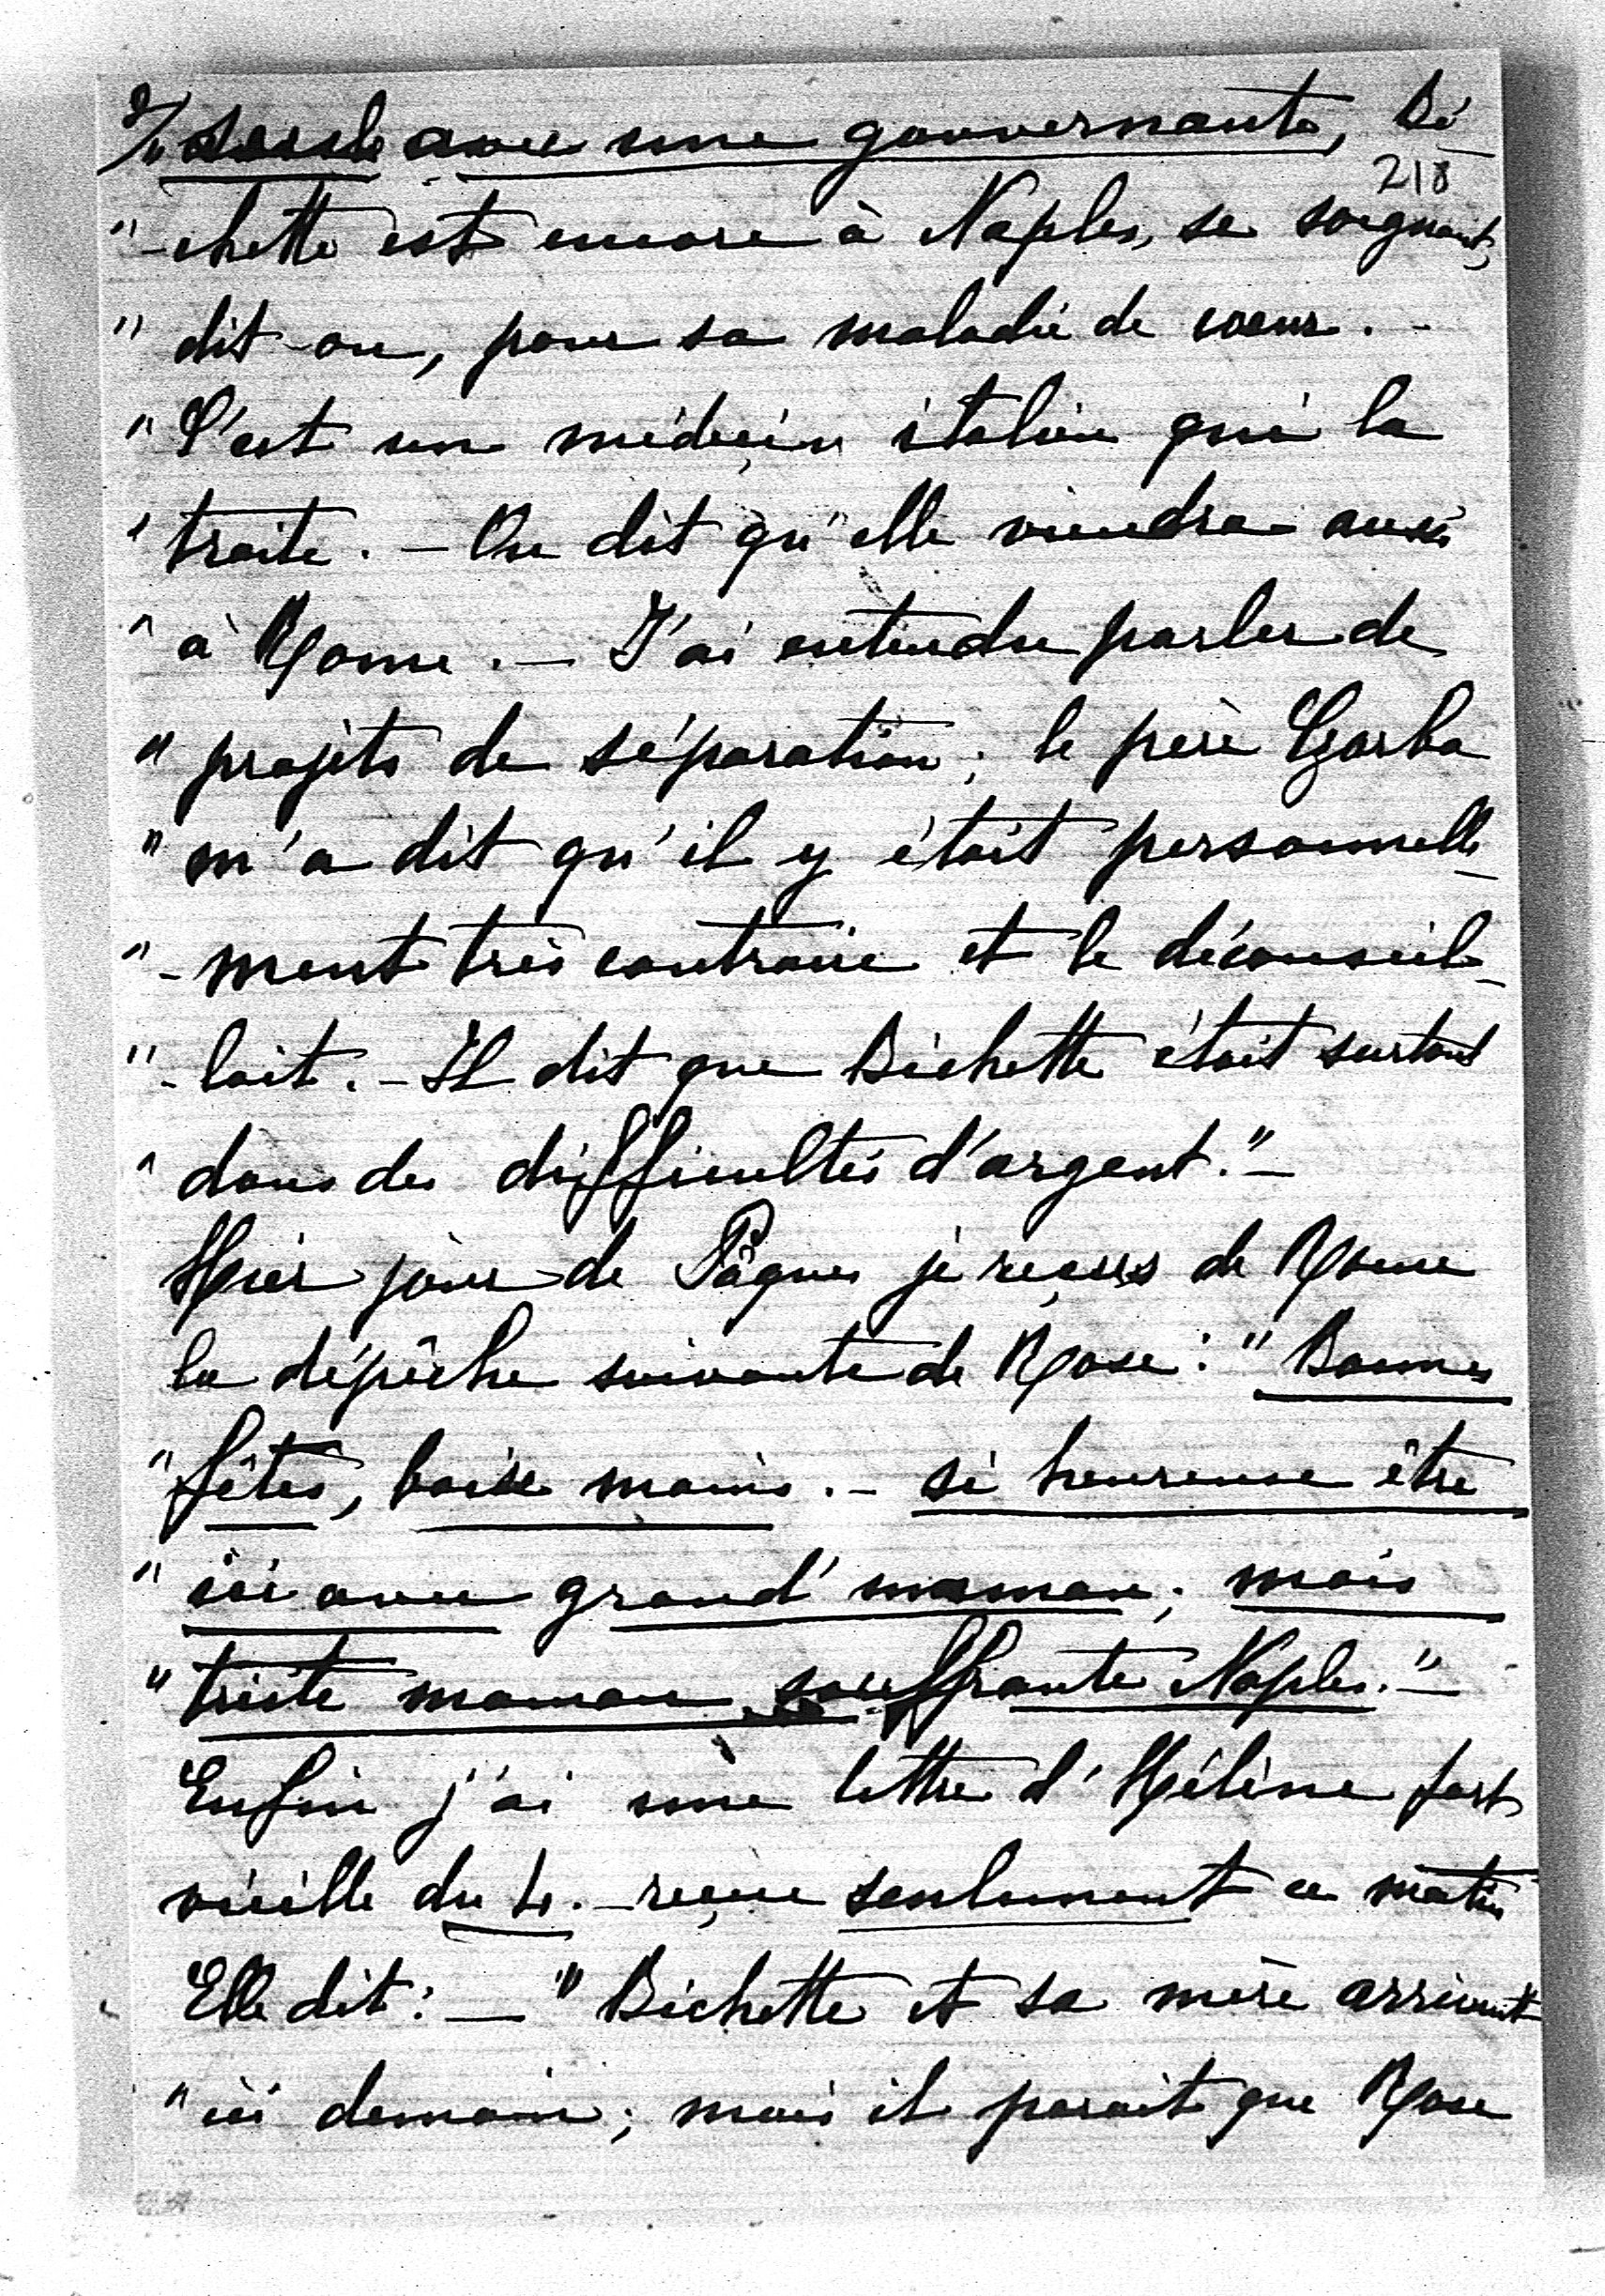 7/" seule avec une gouvernante, Bi-
218
"-chette est encore à Naples, se soignant,
" dit-on, pour sa maladie de coeur. -
" C'est un médecin italien qui la
" traite. - On dit qu'elle viendra aussi
" à Rome. - J'ai entendu parler de
" projets de séparation; le père Czorba
" m'a dit qu'il y était personnelle-
"-ment très contraire et le déconseil-
"-lait. - Il dit que Bichette était surtout
" dans des difficultés d'argent." -
Hier jour de Pâques je reçus de Rome
la dépêche suivante de Rose: " Bonnes
" fêtes, baise mains. - si heureuse être
" ici avec grand'maman; mais
" triste maman souffrante Naples." -
Enfin j'ai une lettre d'Hélène fort
vieille du 4. - reçue seulement ce matin
Elle dit: - " Bichette et sa mère arrivent
" ici demain; mais il parait que Rose